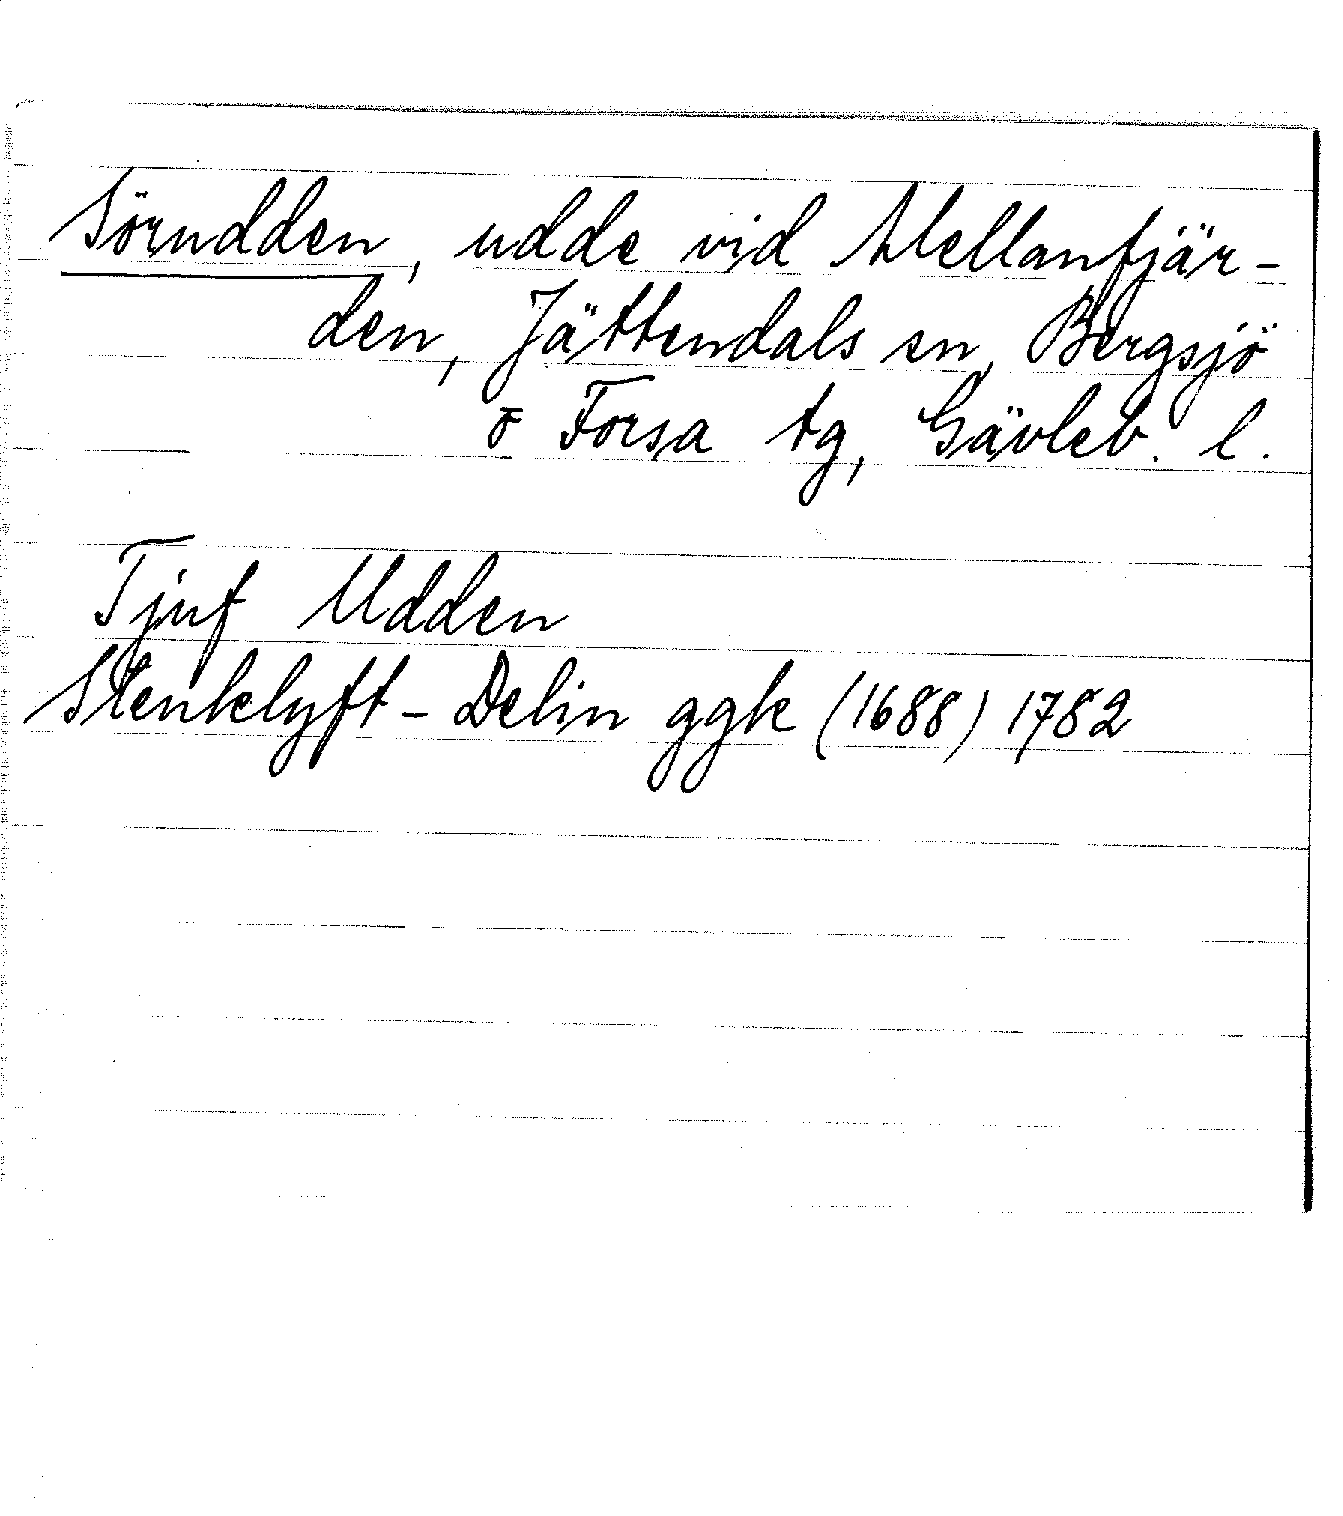 Sörudden, udde vid Mellanfjär-
den, Jättendals sn, Bergsjö
o Forsa tg, Gävleb. l.
Tjuf Udden
Stenklyft - Delin ggk (1688) 1782